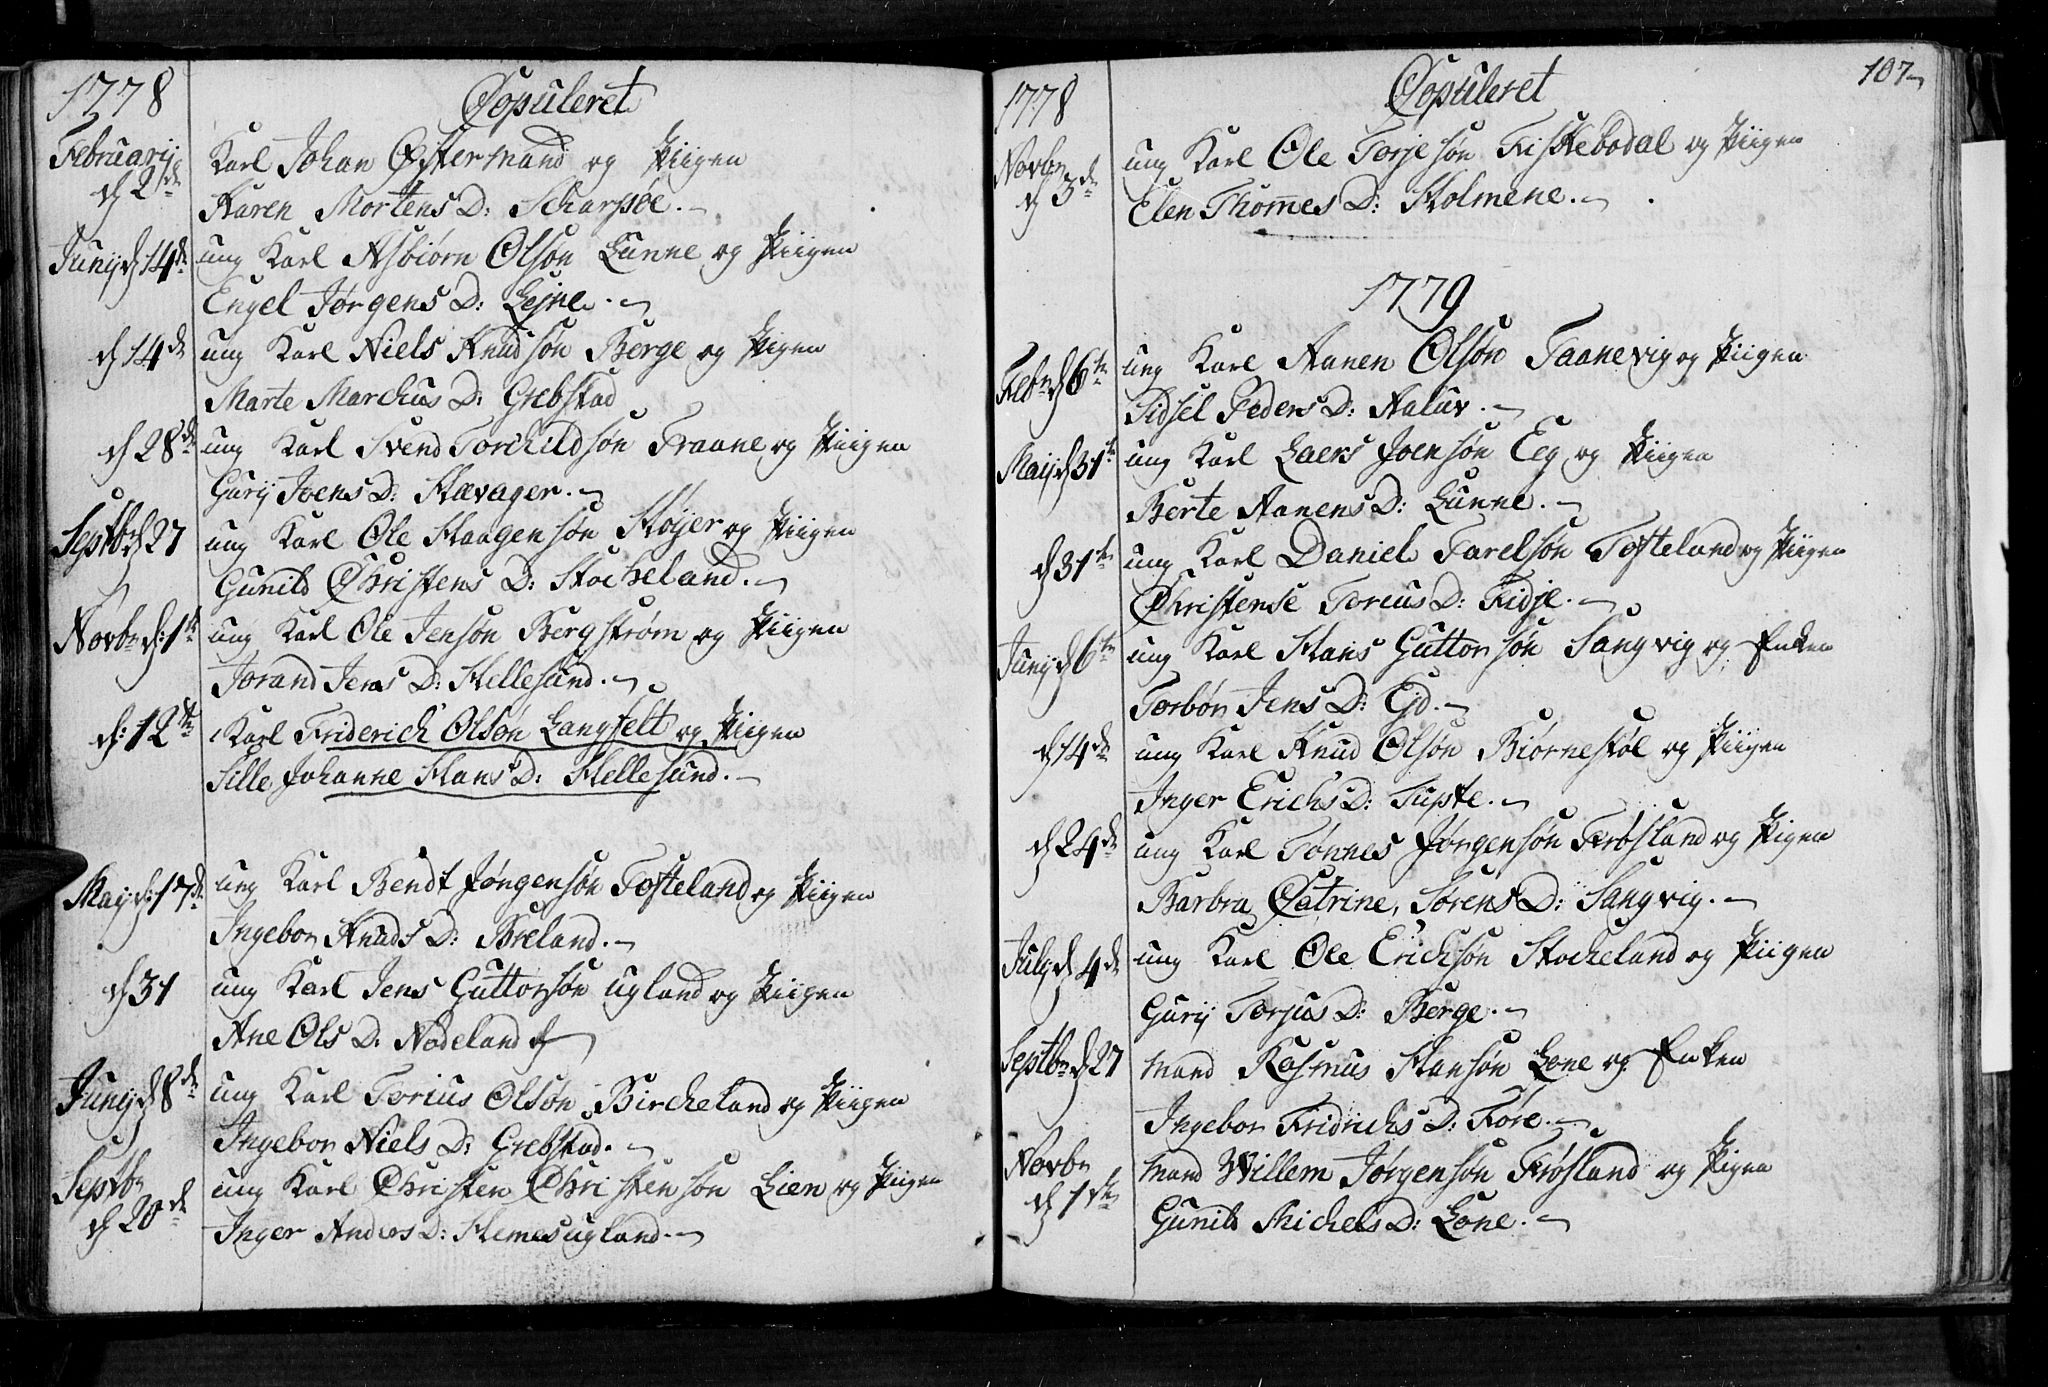 1778
Copuleret
Februarij
d 2de
Karl Johan Østermand og Piigen
Karen Mortens D: Scharpsøe.
Junij d 14de
ung Karl Asbiørn Olsøn Lunne og Piigen
Engel Jørgens D: Lejne.
d 14de
ung Karl Niels Knudsøn Berge og Pigen
Marte Marchus D: Grebstad
d 28de
ung Karl Svend Torchildsøn Traane og Piigen
Gurij Joens D: Hævager.
Septbr d 27
ung Karl Ole Haagensøn Høyer og Piigen
Gunild Christens D: Stocheland.
Novbr d: 1te
ung Karl Ole Jensøn Bergstrøm og Piigen
Jorand Jens D: Hellesund.
d: 12te
Karl Friderich Olsøn Langfelt og Piigen
Sille Johanne Hans D: Hellesund.
Maij d: 17de
ung Karl Bendt Jørgensøn Tofteland og Piigen
Ingebor Knuds D: Breland.
d 31
ung Karl Jens Guttorsøn ugland og Piigen
Ane Ols D: Nodeland
Junij d 8de
ung Karl Torius Olsøn Bircheland og Piigen
Ingebor Niels D: Grebstad.
Septbr
d 20de
ung Karl Christen Christensøn Lien og Piigen
Inger Anders D: Hemesugland.
107
1778
Copuleret
Novbr
d 3de
ung Karl Ole Torjesøn Fiskebodal og Piigen
Elen Thommes D: Holmene.
1779
Febr d 6te
ung Karl Aanen Olsøn Taanevig og Piigen
Sidsel Peders D: Aaluv.
Maij d 31te
ung Karl Laers Joensøn Eeg og Piigen
Berte Aanens D: Lunne.
d 31te
ung Karl Daniel Tarelsøn Tofteland og Piigen
Christense Torius D: Fidje.
Junij d 6te
ung Karl Hans Guttorsøn Sangvig og Enken
Torbør Jens D: Ejd.
d 14de
ung Karl Knud Olsøn Biørnestøl og Piigen
Inger Erichs D: Tupte.
d 24de
ung Karl Tønnes Jørgensøn Frøsland og Pigen
Barbra Catrine, Sørens D: Sangvig.
July d 4de
ung Karl Ole Erichsøn Stocheland og Piigen
Gurij Torjus D: Berge.
Septbr d 27
Mand Rasmus Hansøn Lone og Enken
Ingebor Fridrichs D: Føre.
Novbr
d 1ste
Mand Willem Jørgensøn Frøsland og Pigen
Gunild Michels D: Lone.